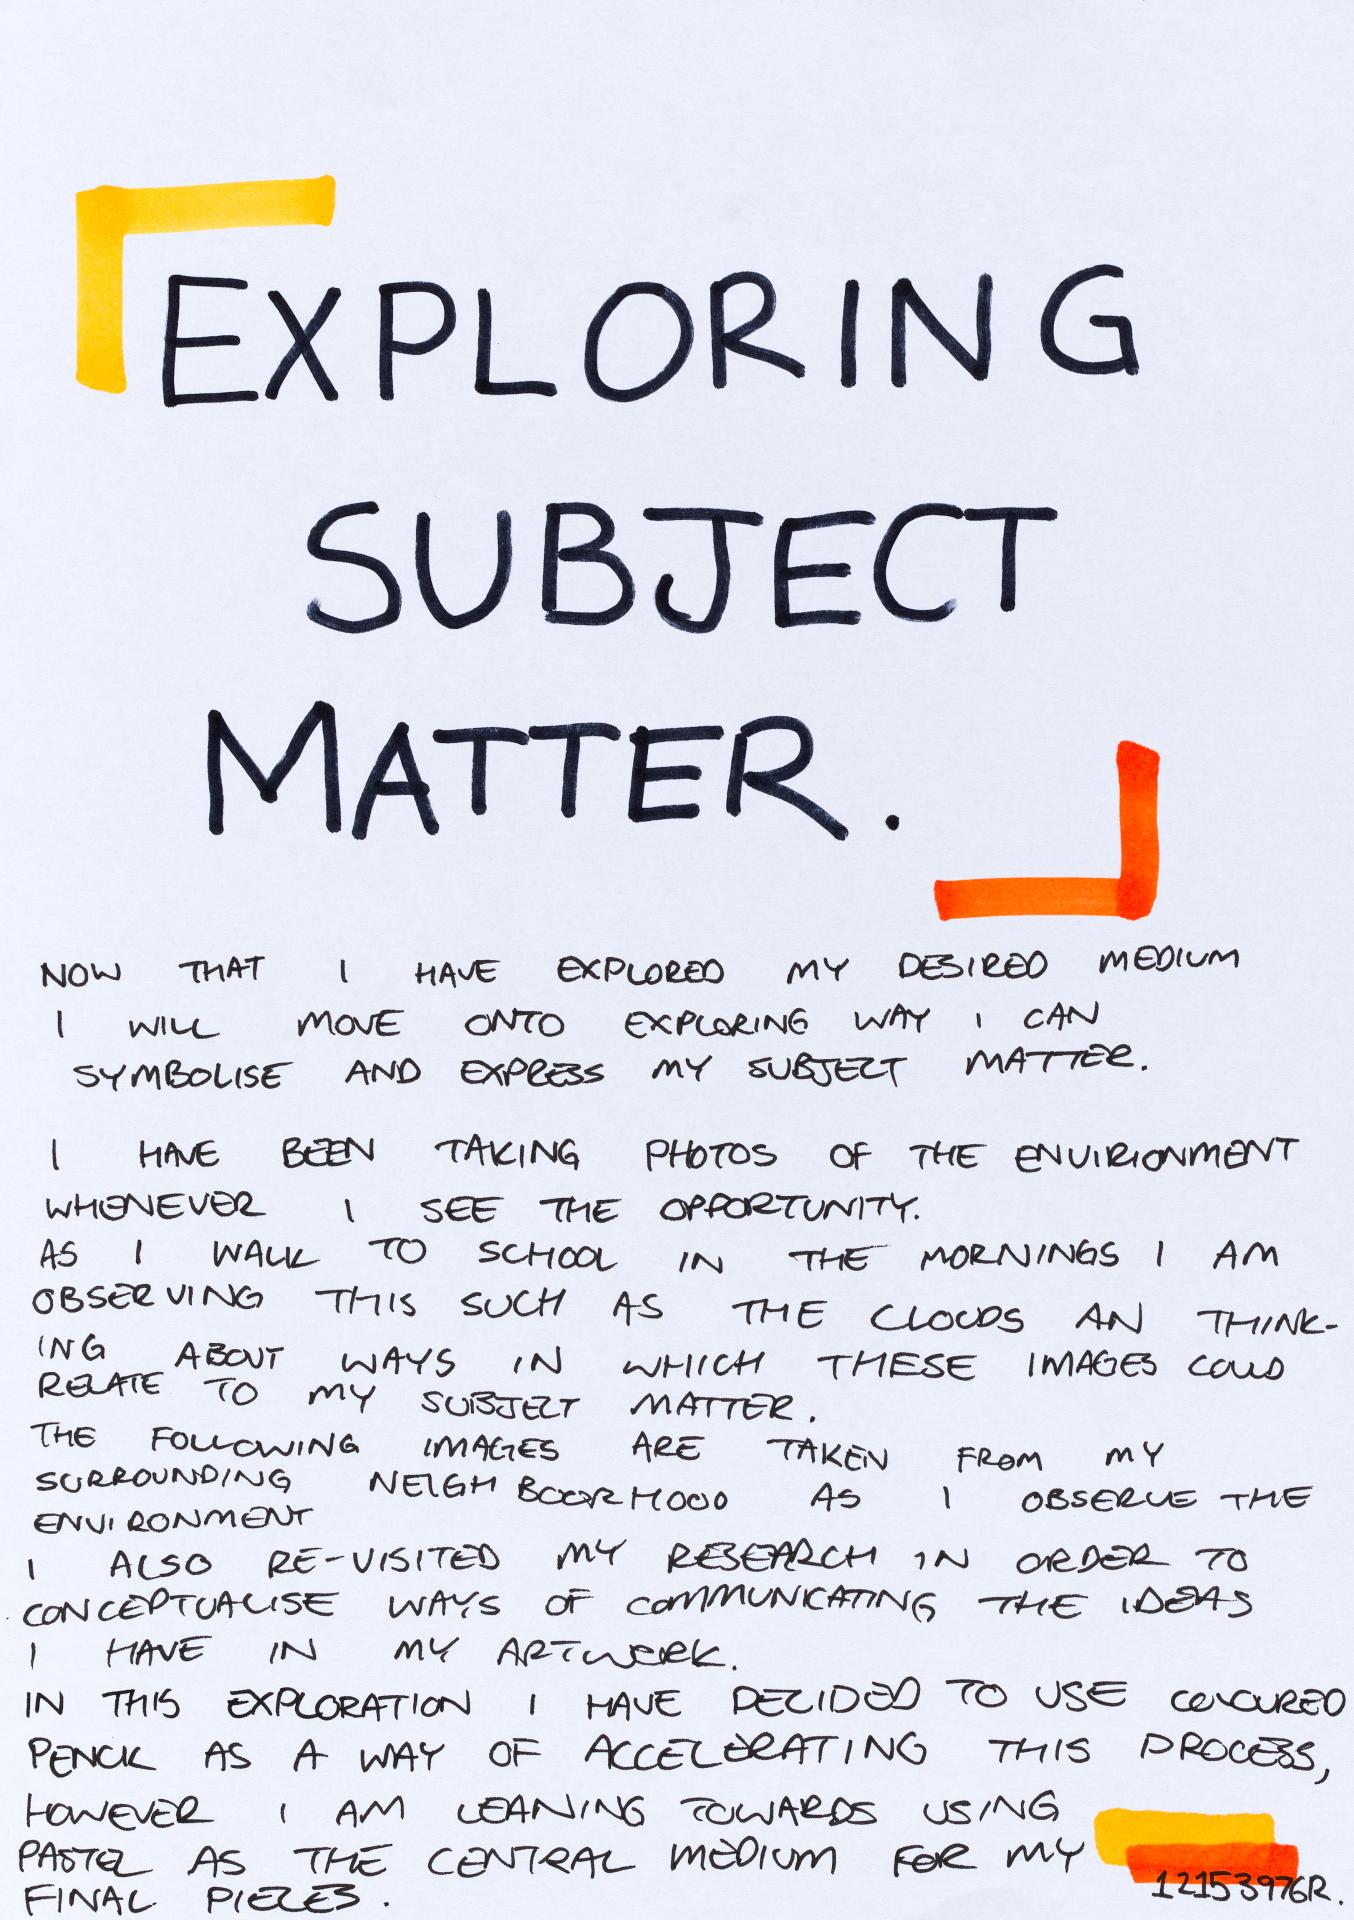 EXPLORING
SUBJECT
MATTER.
NOW THAT I HAVE EXPLORED MY DESIRED MEDIUM
I WILL MOVE ONTO EXPLORING WAY I CAN
SYMBOLISE AND EXPRESS MY SUBJECT MATTER.
I HAVE BEEN TAKING PHOTOS OF THE ENVIRIONMENT
WHENEVER I SEE THE OPPORTUNITY.
AS I WALK TO SCHOOL IN THE MORNINGS I AM
OBSERVING THIS SUCH AS THE CLOUDS AN THINK-
ING ABOUT WAYS IN WHICH THESE IMAGES COULD
RELATE TO MY SUBJECT MATTER.
THE FOLLOWING IMAGES ARE TAKEN FROM MY
SURROUNDING NEIGHBOORHOOD AS I OBSERVE THE
ENVIRONMENT
I ALSO RE-VISITED MY RESEARCH IN ORDER TO
CONCEPTUALISE WAYS OF COMMUNICATING THE IDEAS
I HAVE IN MY ARTWORK.
IN THIS EXPLORATION I HAVE DECIDED TO USE COLOURED
PENCIL AS A WAY OF ACCELERATING THIS PROCESS,
HOWEVER I AM LEANING TOWARDS USING
PASTEL AS THE CENTRAL MEDIUM FOR MY
FINAL PIECES.
12153976R.